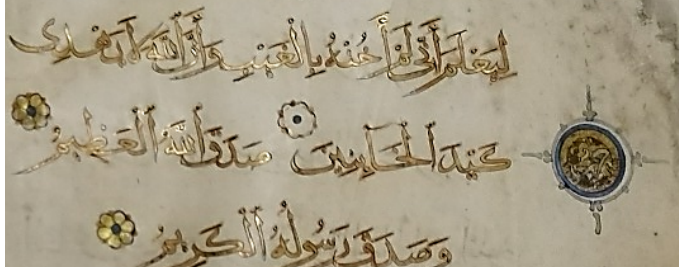 لِيَعْلَمَ أَنِّي لَمْ أَخُنْهُ بِالْغَيْبِ وَأَنَّ اللَّهَ لَا يَهْدِي
كَيْدَ الْخَائِنِينَ صَدَقَ اللَّهُ الْعَظِيمُ
وَصَدَقَ رَسُولُهُ الْكَرِيمُ